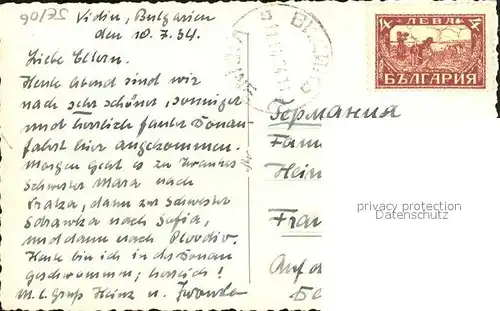 5E/06
Vidin, Bulgarien
den 10.7.34.
Liebe Eltern.
Heute Abend sind wir
nach sehr schöner, sonniger
und herrlich Donau-
fahrt hier angekommen.
Morgen geht es zu
Schwester Mara nach
Vratza, dann zur Schwester
Sdrawka nach Sofia,
und dann nach Plovdiv.
Heute bin ich in der Donau
geschwommen; herrlich!
M. l. Gruß Heinz u.
ЛЕВА
4
БЪЛГАРИЯ
Германия
Fam
Hein
Fran
Auf d
Бе
privacy protection
Datenschutz